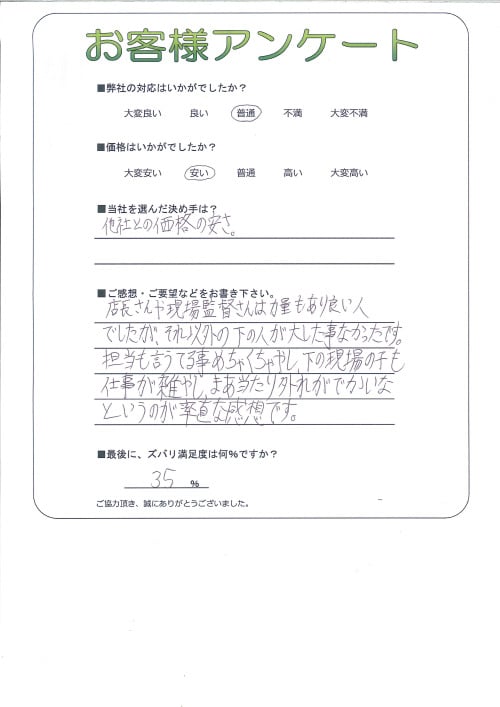 お客様アンケート
■弊社の対応はいかがでしたか？
大変良い 良い 普通 不満 大変不満
■価格はいかがでしたか？
大変安い 安い 普通 高い 大変高い
■当社を選んだ決め手は？
他社との価格の安さ。
■ご感想・ご要望などをお書き下さい。
店長さんや現場監督さんは力量もあり良い人
でしたが、それ以外の下の人が大した事なかったです。
担当も言うてる事めちゃくちゃやし、下の現場の子も
仕事が雑やし、まあ当たり外れがでかいな
というのが率直な感想です。
■最後に、ズバリ満足度は何％ですか？
35 ％
ご協力頂き、誠にありがとうございました。